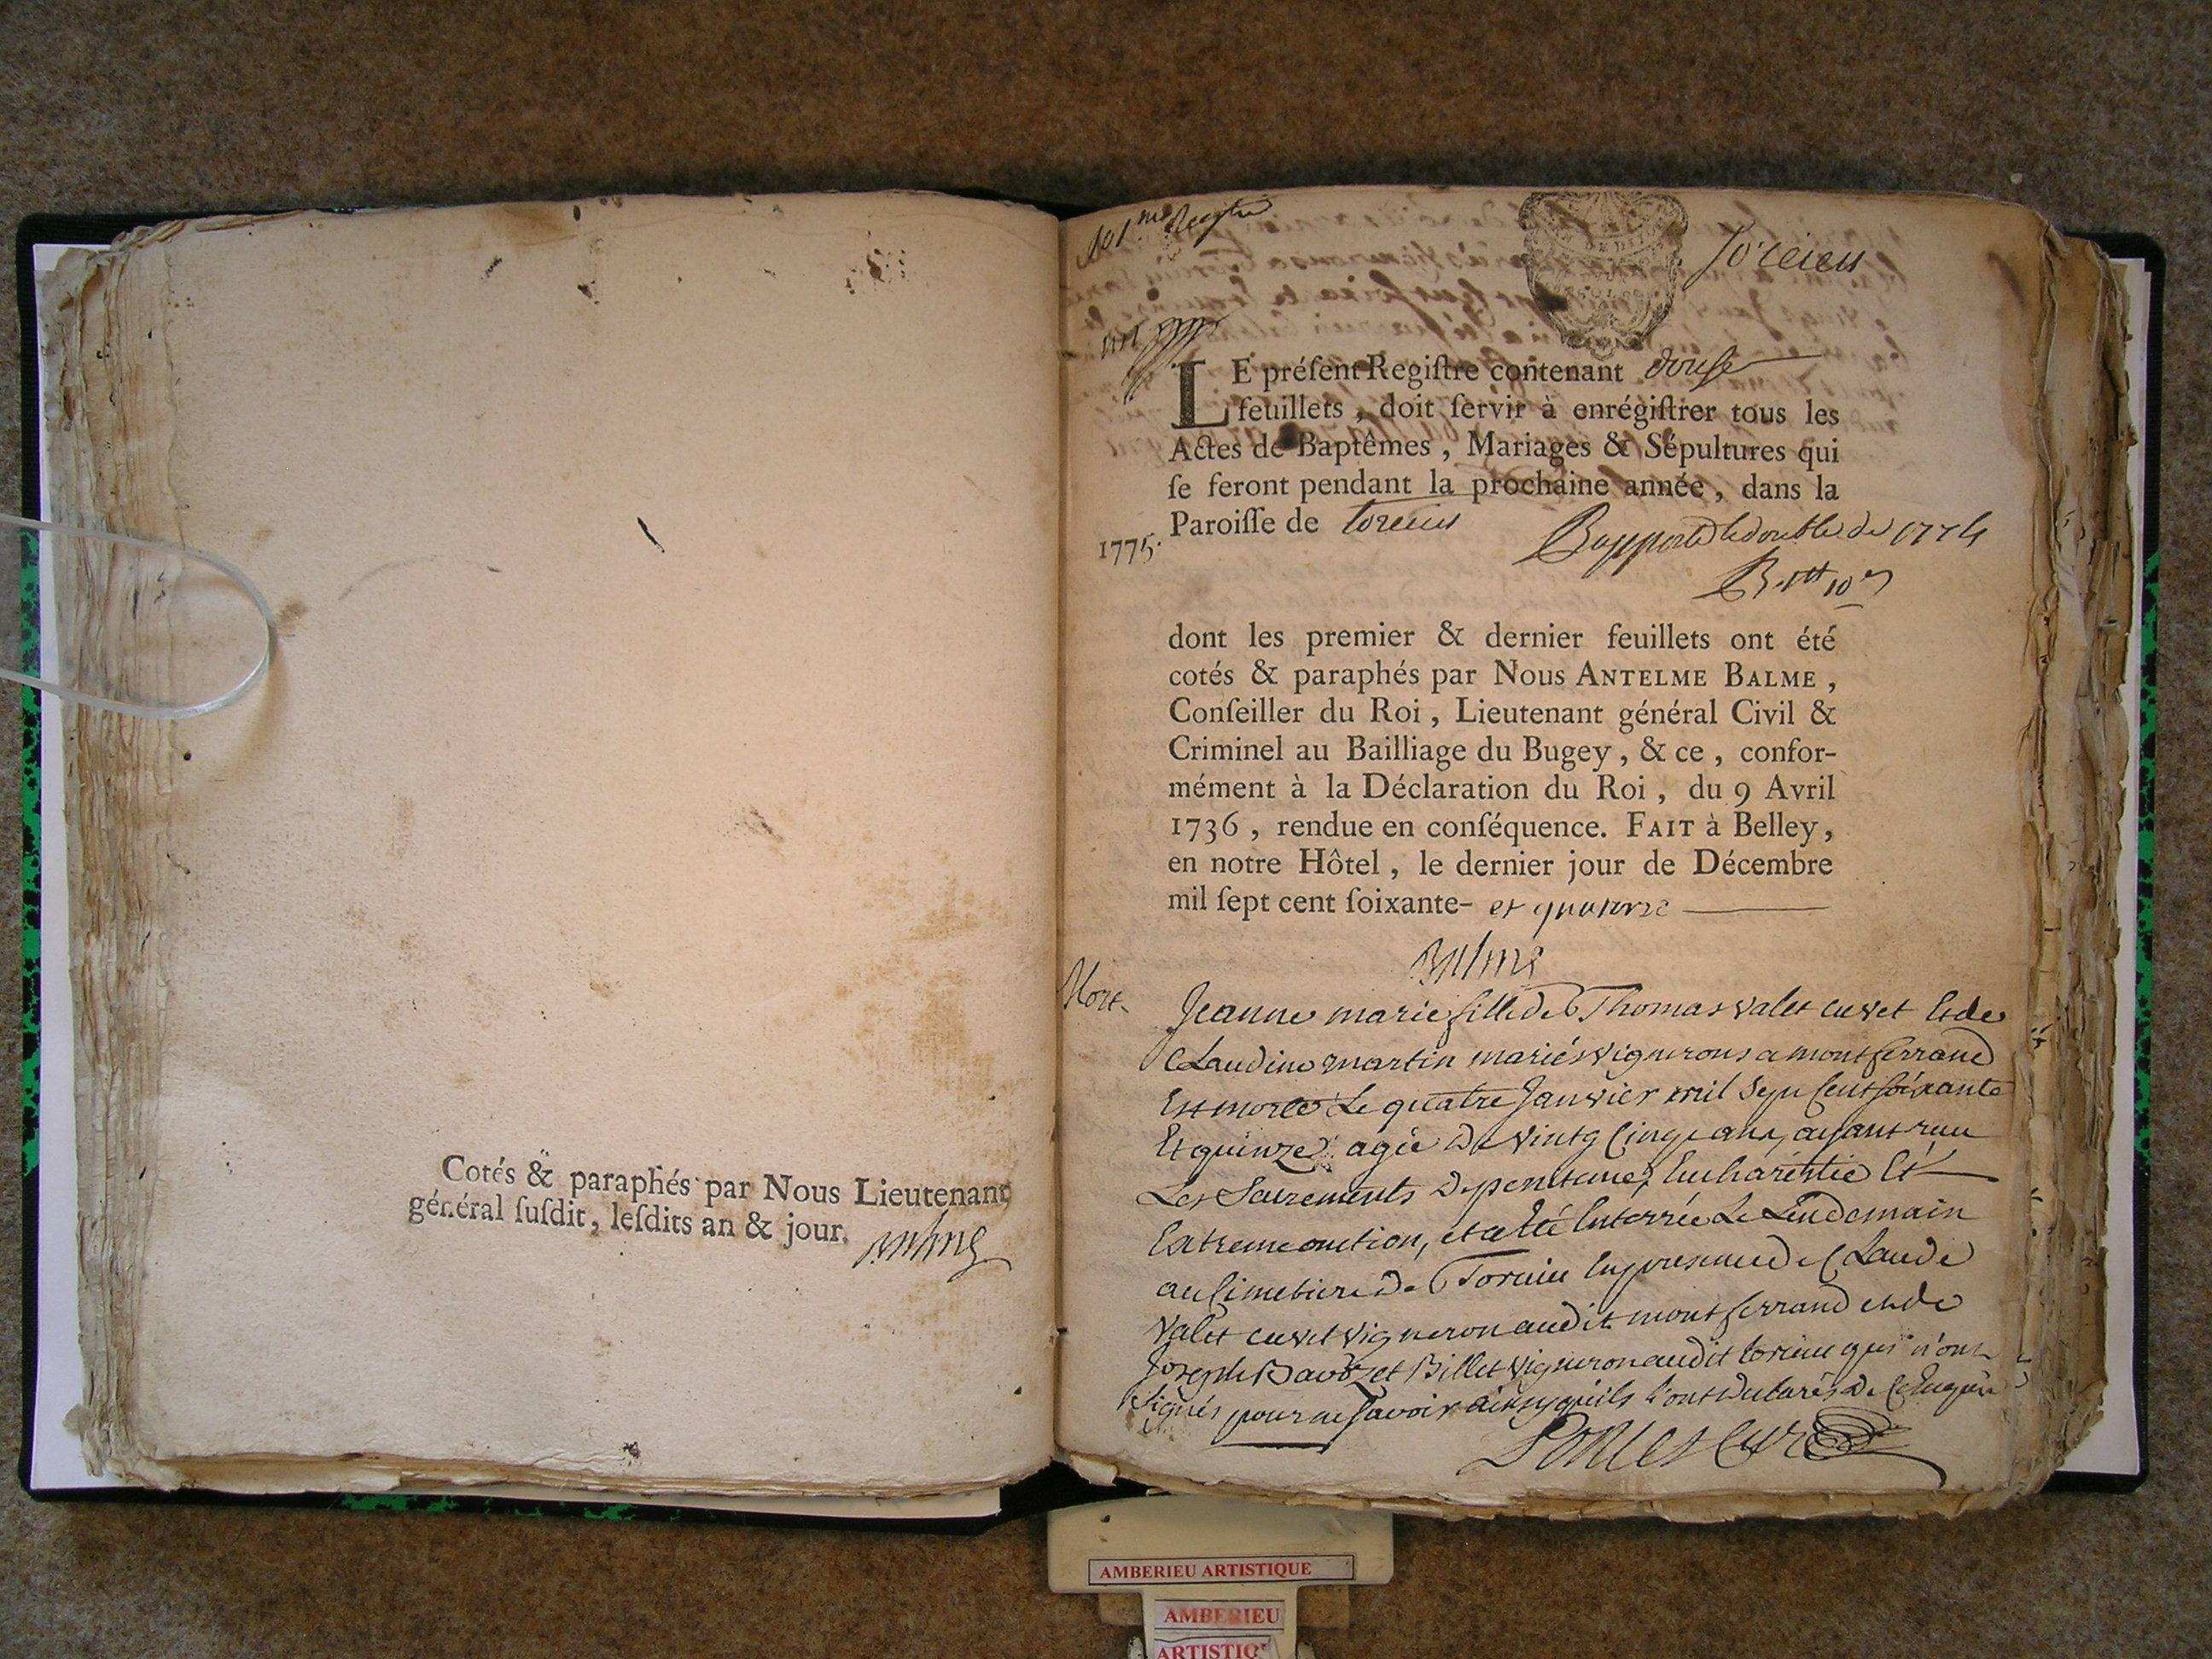 Cotés & paraphés par Nous Lieutenant
général ſuſdit, leſdits an & jour.
Balme
Registre
Torcieu
LE préſent Regiſtre contenant douse
feuillets, doit ſervir à enrégiſtrer tous les
Actes de Baptêmes, Mariages & Sépultures qui
ſe feront pendant la prochaine année, dans la
Paroiſſe de torcieu
1775.
Rapporté le double de 1774
dont les premier & dernier feuillets ont été
cotés & paraphés par Nous ANTELME BALME,
Conſeiller du Roi, Lieutenant général Civil &
Criminel au Bailliage du Bugey, & ce, confor-
mément à la Déclaration du Roi, du 9 Avril
1736, rendue en conſéquence. FAIT à Belley,
en notre Hôtel, le dernier jour de Décembre
mil ſept cent ſoixante- et quatorze
Balme
Mort.
Jeanne marie fille de Thomas valet cuvet Et de
Claudine martin mariés vignerons a montferrand
Est morte Le quatre Janvier mil Sept Cent soixante
Et quinze agée De vintg Cinq ans, ayant reçu
Les Sacrements De penitence, Eucharistie Et
Extreme onction, et a Eté Enterrée Le Lendemain
au Cimetiere De Torcieu En presence de Claude
Valet cuvet vigneron audit montferrand et de
Joseph Billet vigneron audit torcieu qui n'ont
Signés pour ne savoir ainsy qu'ils l'ont Declarés De Ce Enquis
Poncet Curé
AMBERIEU ARTISTIQUE
AMBERIEU